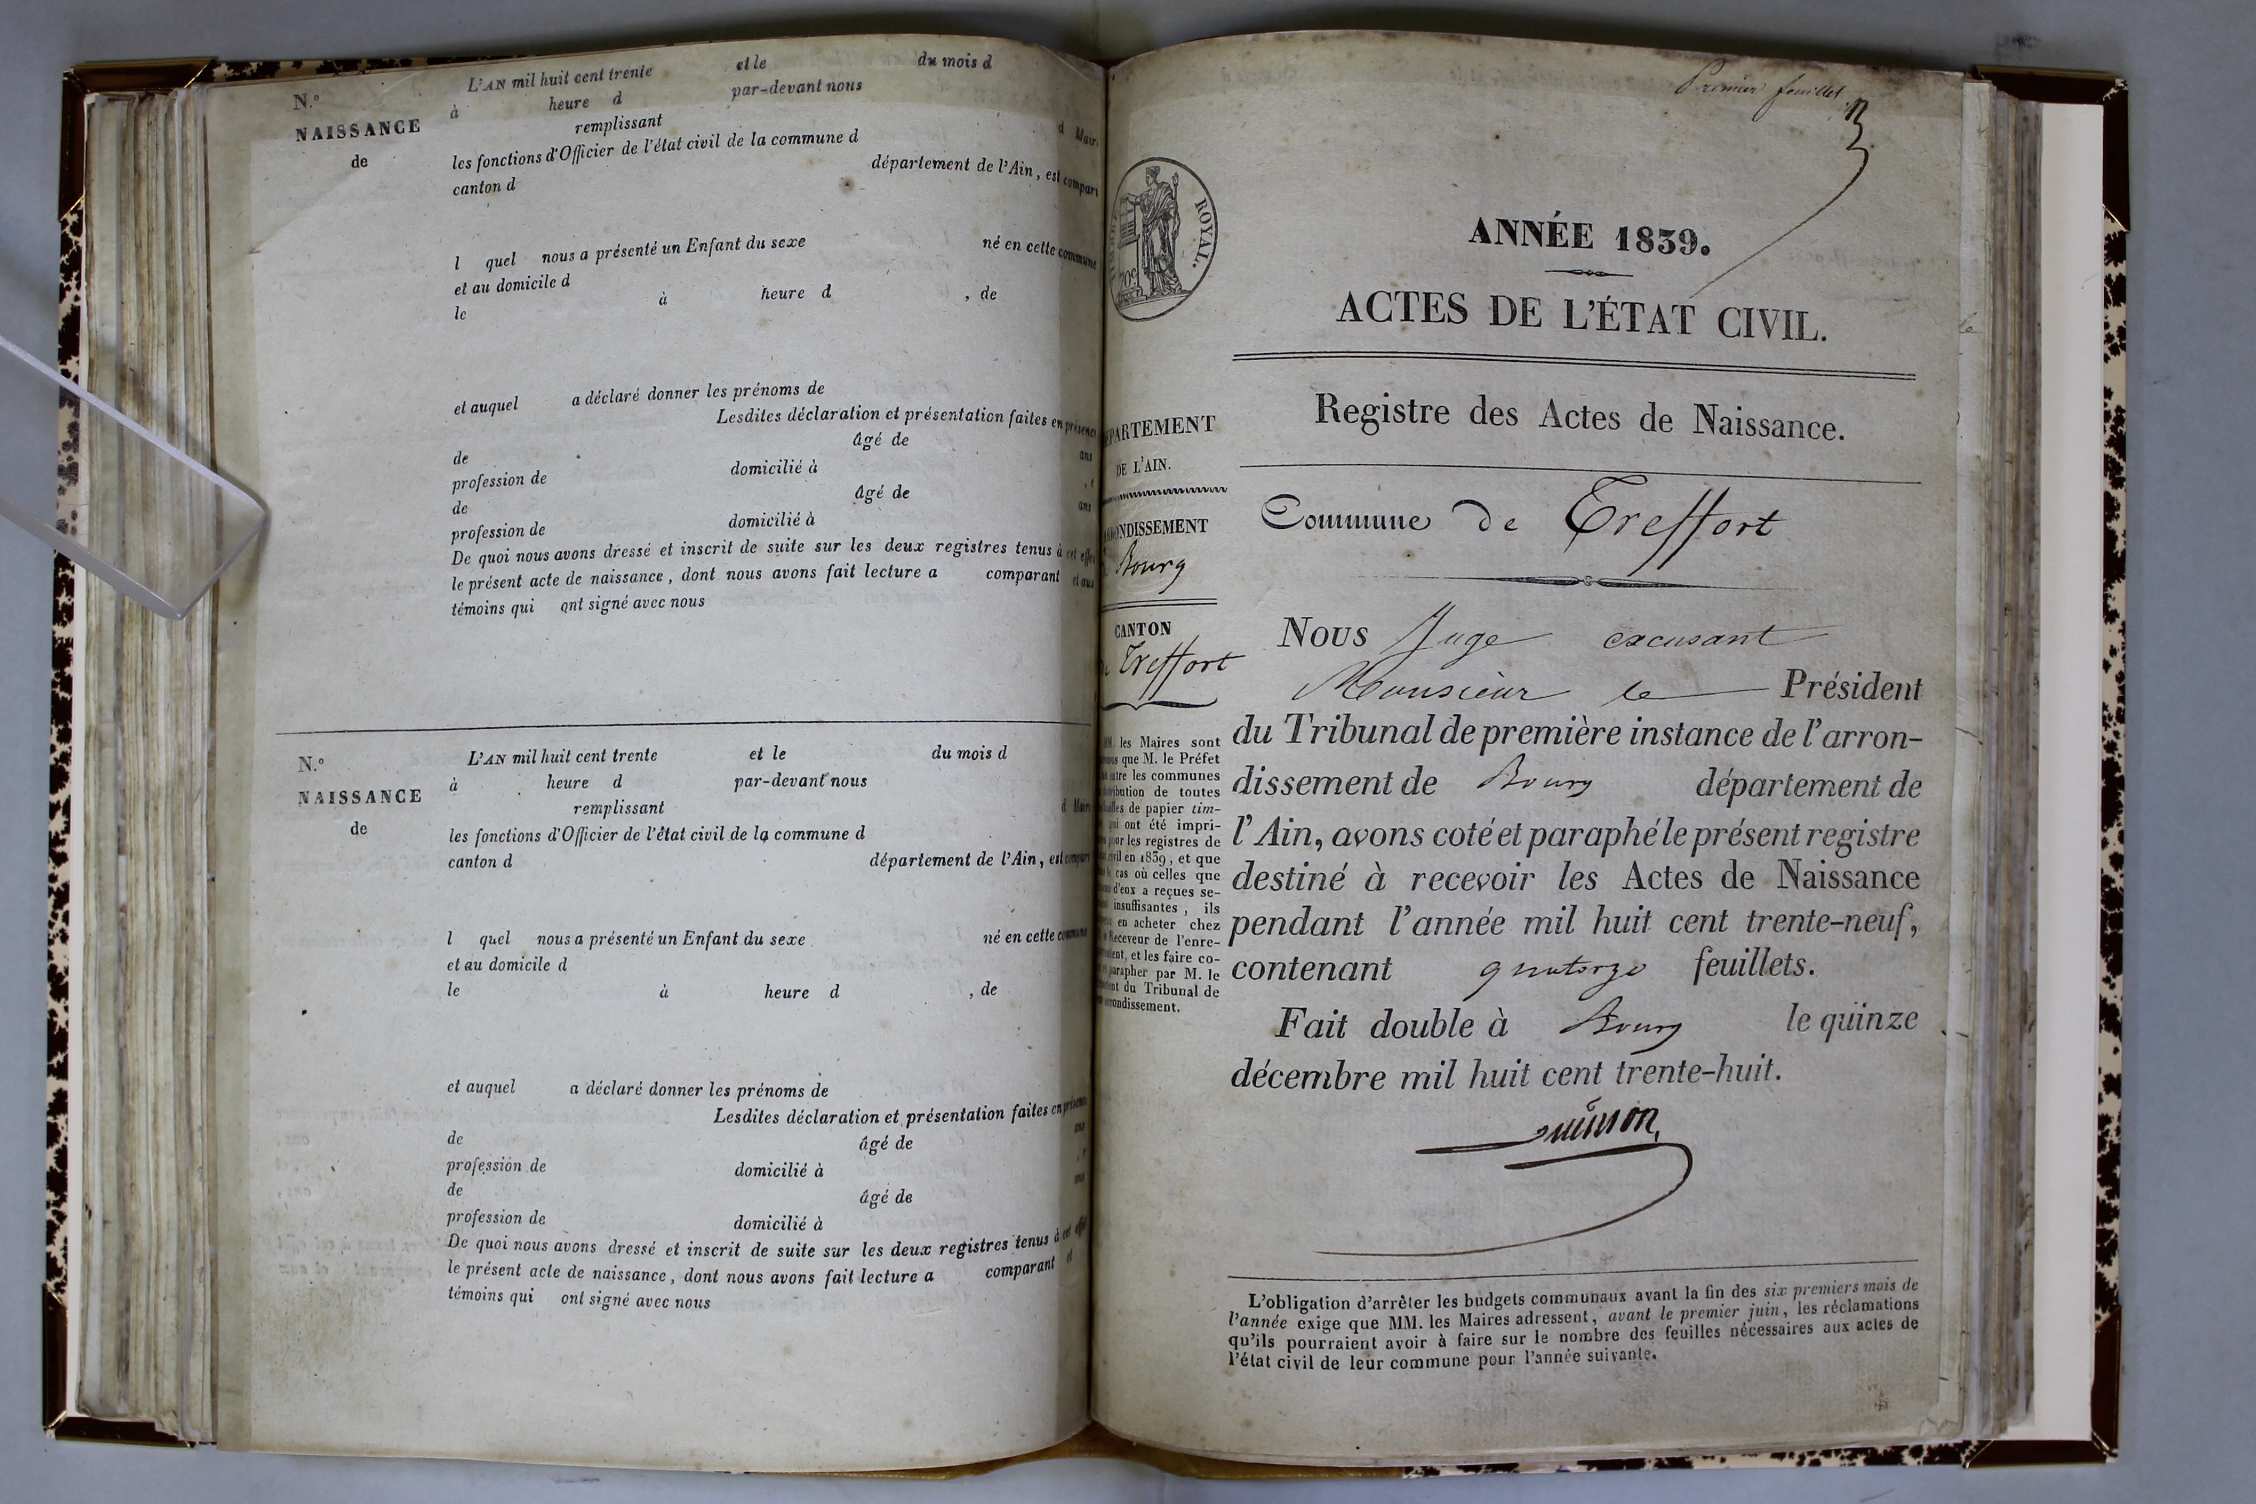 N.º
NAISSANCE
de
L'AN mil huit cent trente et le du mois d
à heure d par-devant nous
remplissant d Mair
les fonctions d'Officier de l'état civil de la commune d
canton d département de l'Ain, est compar
l quel nous a présenté un Enfant du sexe né en cette commune
et au domicile d
le à heure d , de
et auquel a déclaré donner les prénoms de
Lesdites déclaration et présentation faites en présence
de âgé de ans
profession de domicilié à
de âgé de ans
profession de domicilié à
De quoi nous avons dressé et inscrit de suite sur les deux registres tenus à cet effet
le présent acte de naissance, dont nous avons fait lecture a comparant et aux
témoins qui ont signé avec nous
N.º
NAISSANCE
de
L'AN mil huit cent trente et le du mois d
à heure d par-devant nous
remplissant d Mair
les fonctions d'Officier de l'état civil de la commune d
canton d département de l'Ain, est compar
l quel nous a présenté un Enfant du sexe né en cette commune
et au domicile d
le à heure d , de
et auquel a déclaré donner les prénoms de
Lesdites déclaration et présentation faites en présence
de âgé de ans
profession de domicilié à
de âgé de ans
profession de domicilié à
De quoi nous avons dressé et inscrit de suite sur les deux registres tenus à cet effet
le présent acte de naissance, dont nous avons fait lecture a comparant et
témoins qui ont signé avec nous
Premier feuillet
ROYAL.
ANNÉE 1839.
ACTES DE L'ÉTAT CIVIL.
Registre des Actes de Naissance.
Commune de Treffort
PARTEMENT
DE L'AIN.
ONDISSEMENT
Bourg
CANTON
Treffort
les Maires sont
que M. le Préfet
les communes
de toutes
de papier tim-
ont été impri-
les registres de
civil en 1839, et que
cas où celles que
d'eux a reçues se-
insuffisantes, ils
en acheter chez
Receveur de l'enre-
et les faire co-
parapher par M. le
du Tribunal de
rondissement.
Nous Juge excusant
Monsieur le Président
du Tribunal de première instance de l'arron-
dissement de Bourg département de
l'Ain, avons coté et paraphé le présent registre
destiné à recevoir les Actes de Naissance
pendant l'année mil huit cent trente-neuf,
contenant quatorze feuillets.
Fait double à Bourg le quinze
décembre mil huit cent trente-huit.
L'obligation d'arrêter les budgets communaux avant la fin des six premiers mois de
l'année exige que MM. les Maires adressent, avant le premier juin, les réclamations
qu'ils pourraient avoir à faire sur le nombre des feuilles nécessaires aux actes de
l'état civil de leur commune pour l'année suivante.